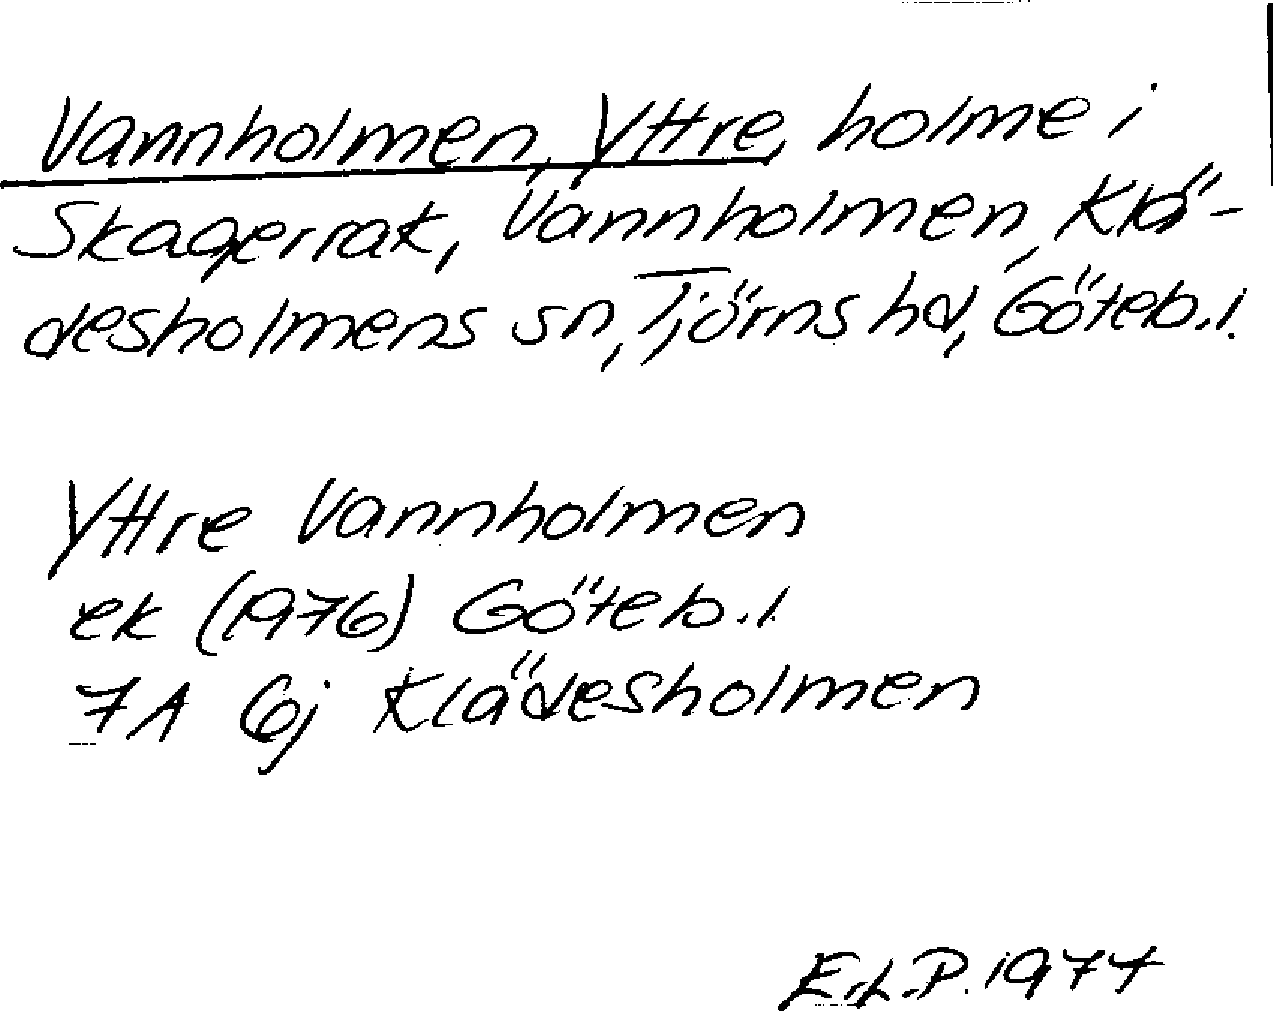 Vannholmen, Yttre, holme i
Skagerrak, Vannholmen, Klä-
desholmens sn, Tjörns hd, Göteb.l.
Yttre Vannholmen
ek (1976) Göteb.l.
7A 6j Klädesholmen
E.L.P. 1977